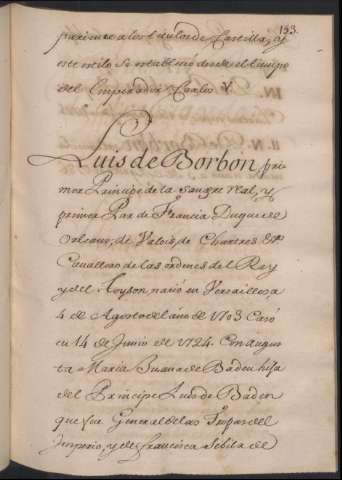 193.
parimos a los titulos de Castilla, y
este estilo se establecio desde el tiempo
del Emperador Carlos V.
Luis de Borbon, pri
mer Principe de la Sangre real, y
primer Par de Francia Duque de
Orleans, de Valois, de Chartres
Cavallero de las ordenes del Rey
y del Toyson nacio en Versailles, a
4 de Agosto del año de 1703 Casó
en 14 de Junio de 1724. Con Augus
ta Maria Juana de Baden hija
del Principe Luis de Baden
que fue General de las Tropas del
Imperio, y de francisca Sibila de